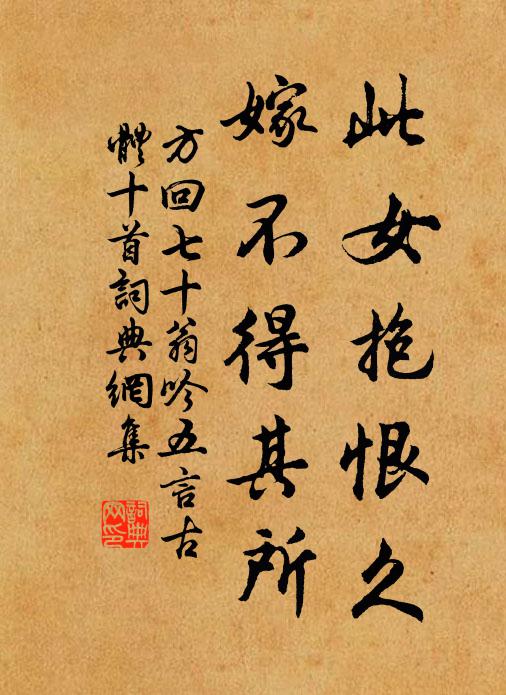 此女抱恨久
嫁不得其所
方回七十翁吟五言古
體十首詞典網集
詞典网印